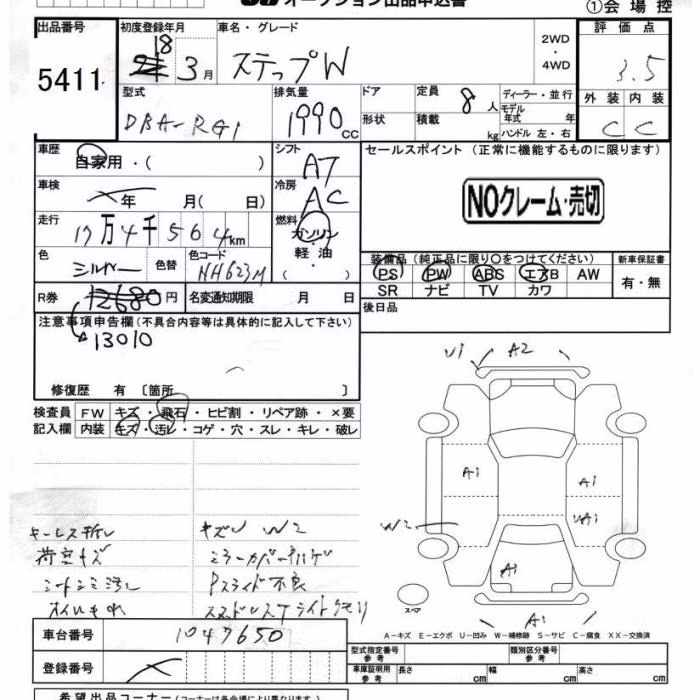 オークション出品申込書
①会場控
出品番号
5411
初度登録年月
18
3月
車名・グレード
ステップW
2WD・
4WD
評価点
3.5
型式
DBA-RG1
排気量
1990cc
ドア
形状
定員
8人
積載
kg
ディーラー・並行
モデル
年式 年
ハンドル 左・右
外装 内装
C C
車歴
自家用・( )
シフト
AT
セールスポイント (正常に機能するものに限ります)
NOクレーム・売切
車検
年 月( 日)
冷房
AC
走行
17万4千564km
燃料
ガソリン
・
軽油
( )
色
シルバー
色替
色コード
NH623M
装備品 (純正品に限り○をつけてください)
PS PW ABS エアB AW
SR ナビ TV カワ
新車保証書
有・無
R券
12680円
名変通知期限 月 日
後日品
注意事項申告欄 (不具合内容等は具体的に記入して下さい)
13010
修復歴 有 〔箇所 〕
検査員
記入欄
FW キズ・飛石・ヒビ割・リペア跡・×要
内装 キズ・汚レ・コゲ・穴・スレ・キレ・破レ
U1 A2
A1 A1
W2 UA1
A1
A1
スペア
キーレス折レ
荷室キズ
シートシミ汚レ
オイルもれ
キズU W2
ミラーカバーハゲ
Pスライド不良
ヘッドライトクモリ
A-キズ E-エクボ U-凹み W-補修跡 S-サビ C-腐食 XX-交換済
車台番号
1047650
登録番号
型式指定番号
参考
類別区分番号
参考
車庫証明用
参考
長さ cm
幅 cm
高さ cm
希望出品コーナー (コーナーは各会場により異なります)